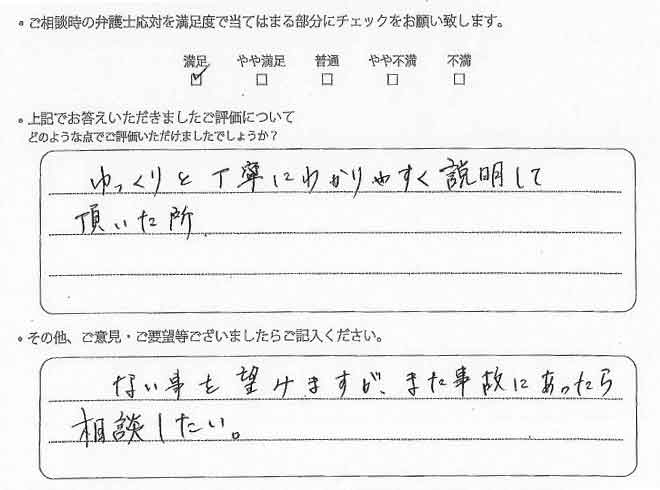 。ご相談時の弁護士応対を満足度で当てはまる部分にチェックをお願い致します。
満足 やや満足 普通 やや不満 不満
。上記でお答えいただきましたご評価について
どのような点でご評価いただけましたでしょうか？
ゆっくりと丁寧にわかりやすく説明して
頂いた所
。その他、ご意見・ご要望等ございましたらご記入ください。
ない事を望けますが、また事故にあったら
相談したい。